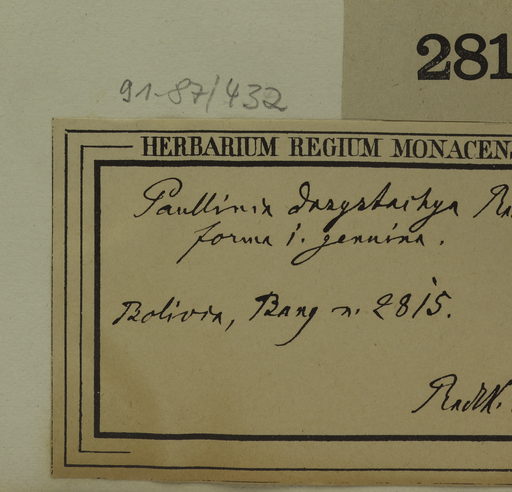 281
91-87/432
HERBARIUM REGIUM MONACENS
Paullinia dasystachya Ra
forma 1. genuina.
Bolivia, Bang n. 2815.
Radlk.